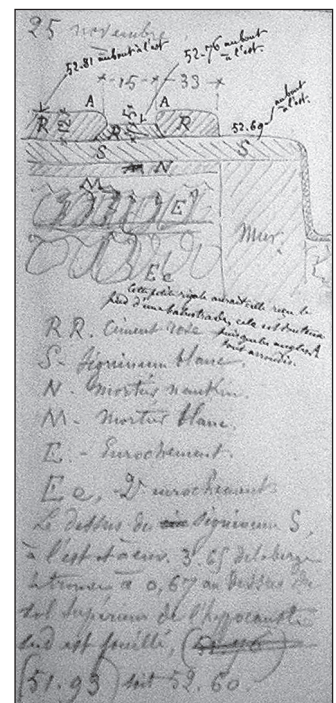 25 novembre
52.81 au bout à l'est.
52-76 au bout
à l'est.
15 33
A A
R R
52.69 au bout
à l'est.
S S
N
M
E
Mur.
E e
Cette petite rigole aurait-elle reçu le
pied d'une balustrade, cela est douteux
puisque les angles A
sont arrondis.
R R. Ciment rose
S - Signinum blanc.
N - mortier nankin.
M - Mortier blanc.
E. - Enrochement.
E e, - 2e enrochement
Le dessus du signinum S,
à l'est et à env. 3.65 de la berge
se trouve à 0,67 au dessus du
sol supérieur de l'hypocauste
sud est fouillé,
(51.93) soit 52.60.